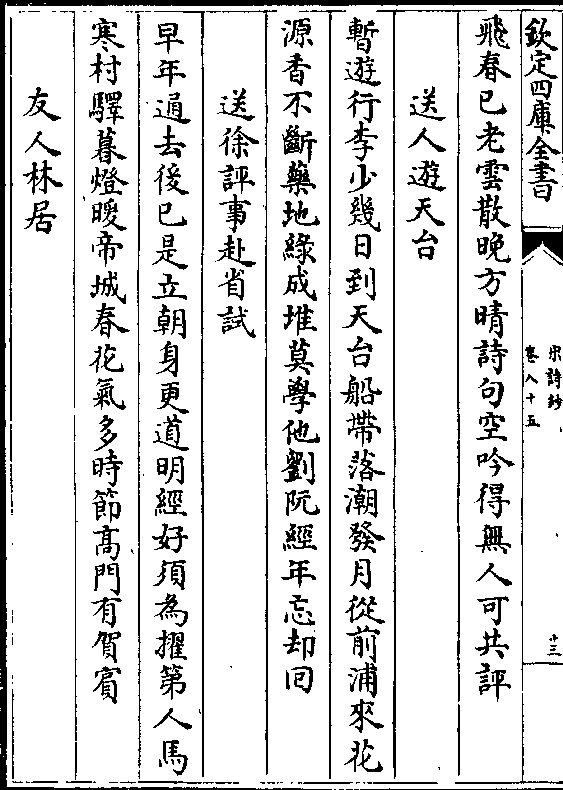 欽定四庫全書
宋詩鈔
卷八十五
十三
飛春已老雲散晚方晴詩句空吟得無人可共評
送人遊天台
暫遊行李少幾日到天台船帶落潮發月從前浦來花
源香不斷藥地綠成堆莫學他劉阮經年忘却回
送徐評事赴省試
早年過去後已是立朝身更道明經好須為擢第人馬
寒村驛暮燈暖帝城春花氣多時節高門有賀賓
友人林居